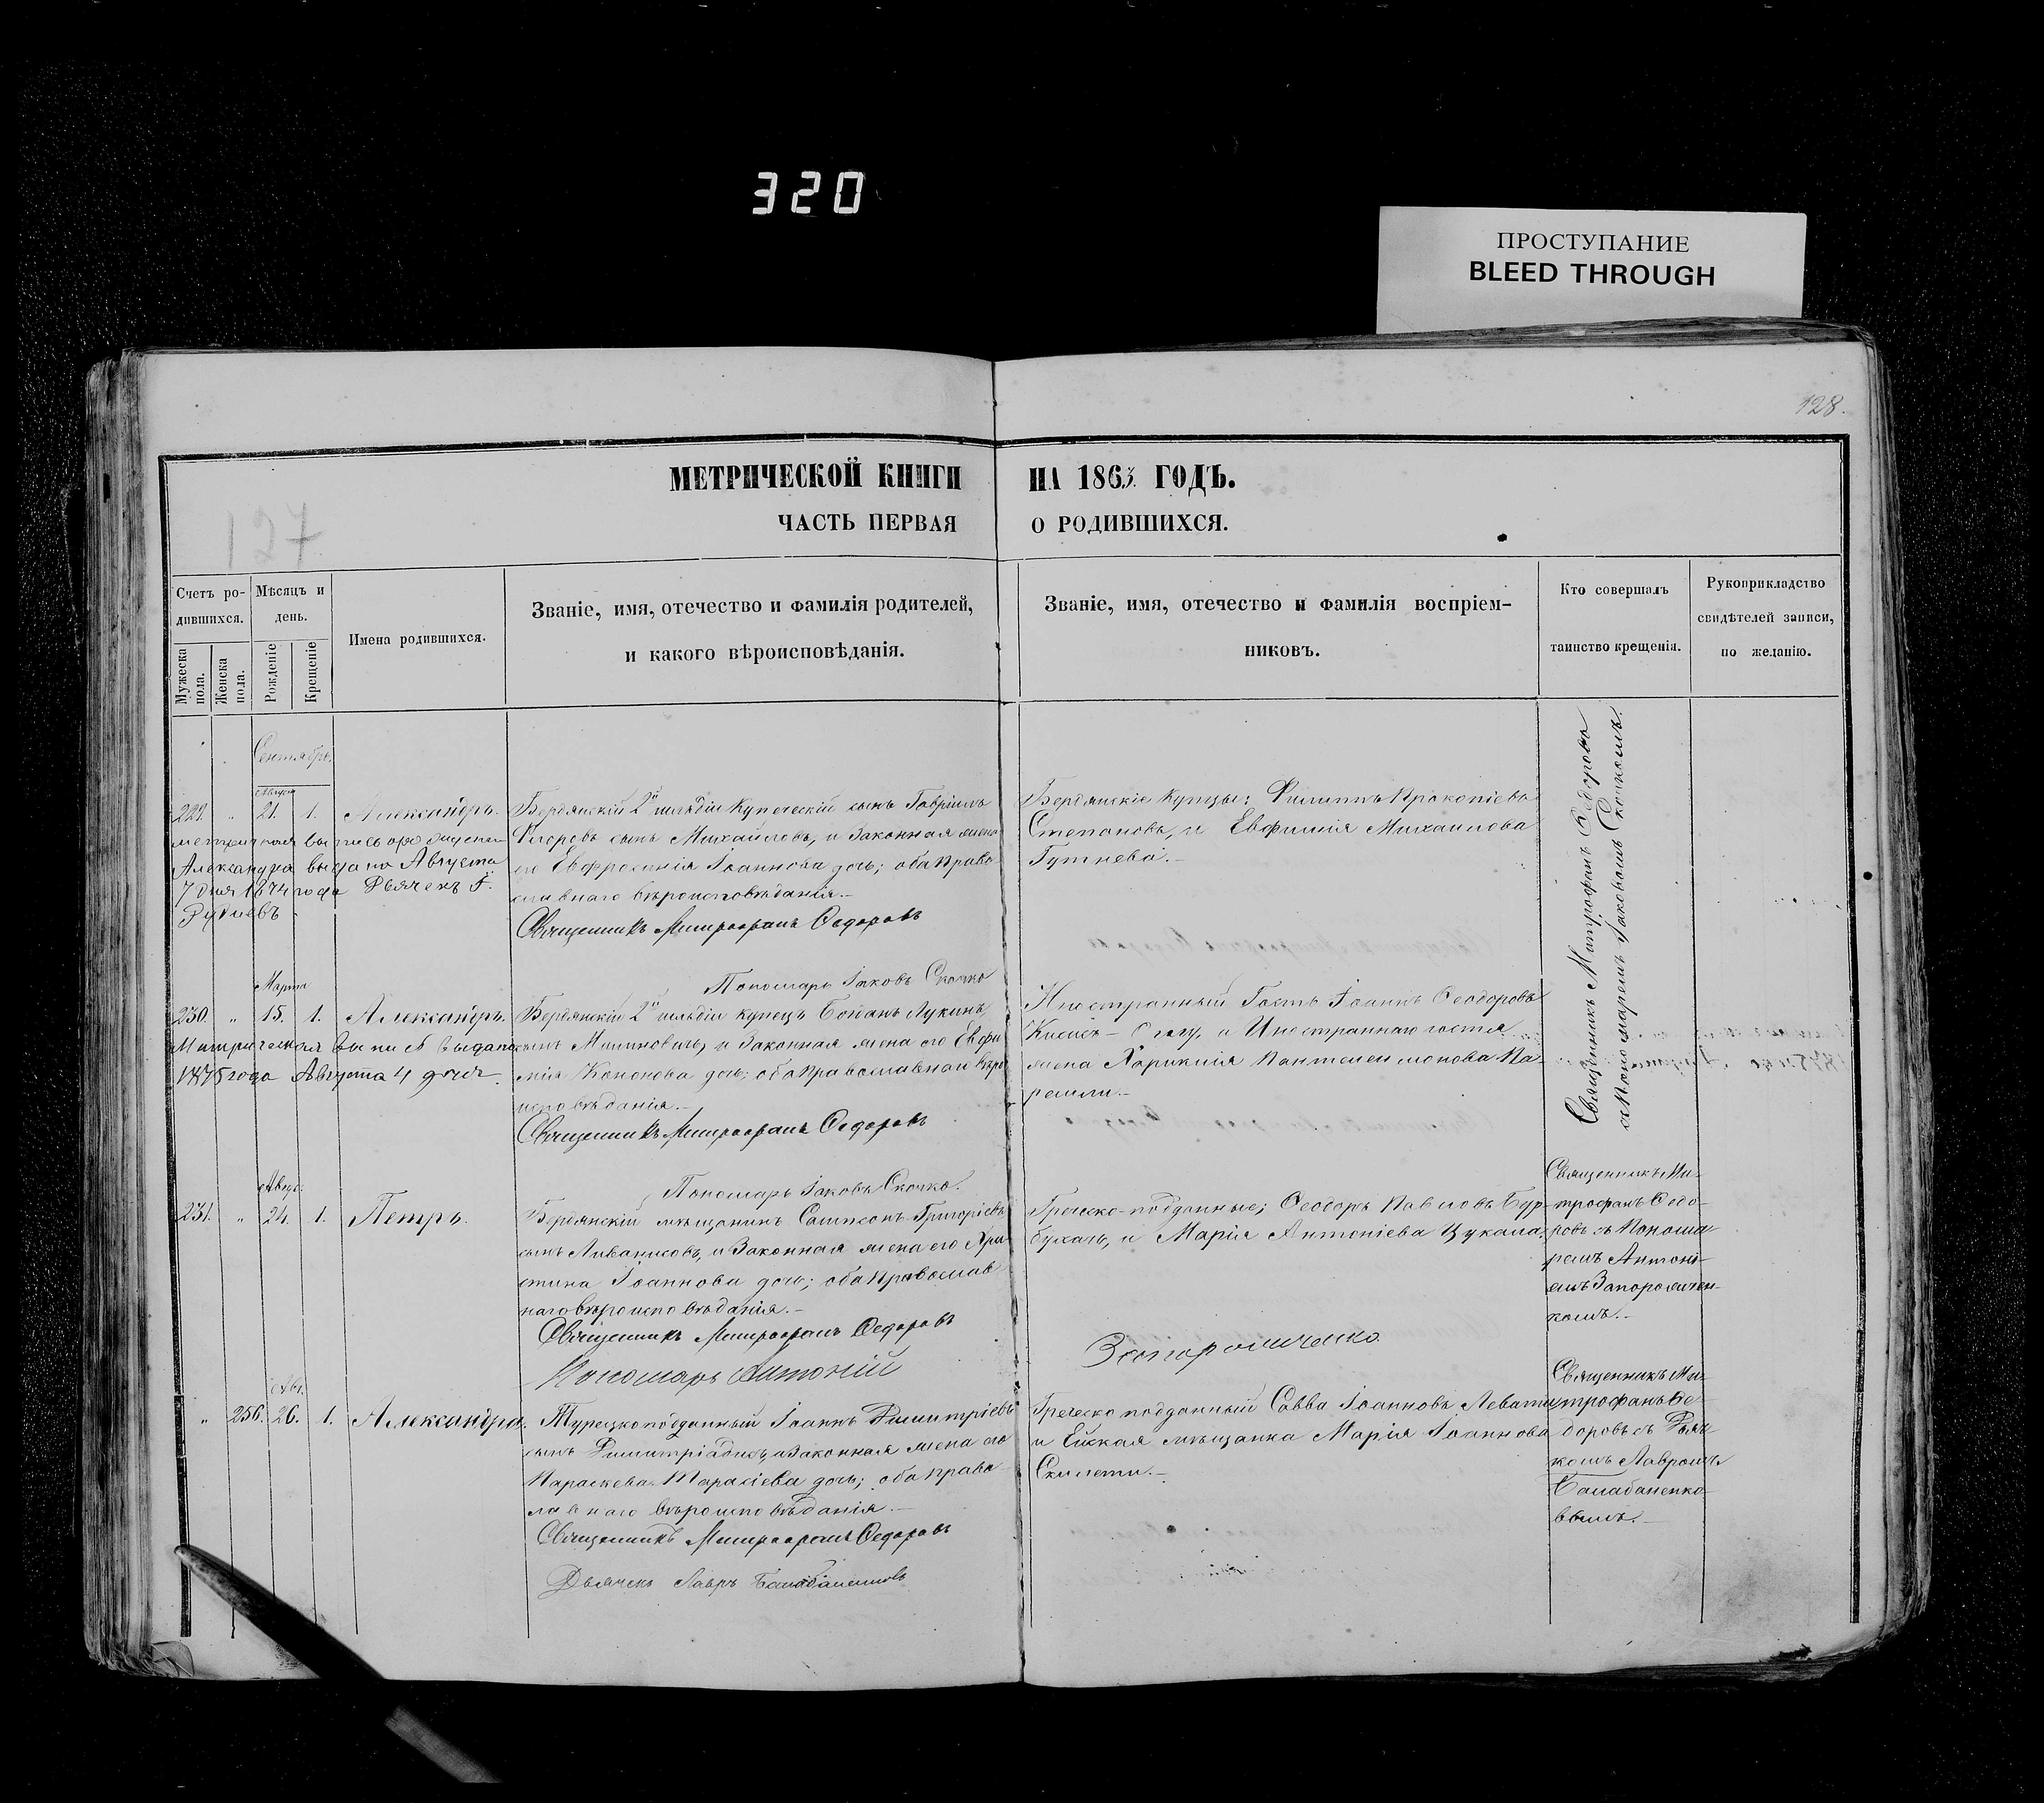 320
ПРОСТУПАНИЕ
BLEED THROUGH
128.
МЕТРИЧЕСКОЙ КНИГИ НА 1863 ГОДЪ.
127
ЧАСТЬ ПЕРВАЯ О РОДИВШИХСЯ.
Счетъ ро-
дившихся.
Мужеска пола.
Женска пола.
Мѣсяцъ и
день.
Рожденіе
Крещеніе
Имена родившихся.
Званіе, имя, отечество и фамилія родителей,
и какого вѣроисповѣданія.
Званіе, имя, отечество и фамилія воспріем-
никовъ.
Кто совершалъ
таинство крещенія.
Рукоприкладство
свидѣтелей записи,
по желанію.
Сентябрь.
Августа
229. " 21. 1. Александръ.
метрическая выпись
Александра выдана Августа
7 дня 1874 года Дьячекъ
Рудиевъ
Бердянскій 2й гильдіи купеческій сынъ Гавріилъ
Егоровъ сынъ Михайловъ, и законная жена
его Евфросинія Іоаннова дочь; оба право
славнаго вѣроисповѣданія.-
Священникъ Митрофанъ Федоровъ
Пономарь Іаковъ Скочко
Бердянскіе купцы: Филиппъ Прокопіевъ
Степановъ, и Евфимія Михаилова
Гутнева.-
Священникъ Митрофанъ Федоровъ
съ Пономаремъ Іаковомъ Скочкомъ.
Марта
230. " 15. 1. Александръ.
Метрическая выпись выдана
1875 года Августа 4 дня.
Бердянскій 2й гильдіи купецъ Богданъ Лукинъ
сынъ Милиновичъ, и законная жена его Евфи
мія Кононова дочь; оба православнаго вѣро
исповѣданія.-
Священникъ Митрофанъ Федоровъ
Пономарь Іаковъ Скочко.
Иностранный Гость Іоаннъ Феодоровъ
и Иностраннаго гостя
жена Хариклія Пантелеимонова Ва-
Авгус.
231. " 24. 1. Петръ.
Бердянскій мѣщанинъ Сампсонъ Григоріевъ
сынъ Ливаниковъ, и законная жена его Хри
стина Іоаннова дочь; оба православ
наго вѣроисповѣданія.-
Священникъ Митрофанъ Федоровъ
Пономарь Антоній Запорожченко
Греческо-подданные; Феодоръ Павловъ Бур-
бухаъ, и Марія Антоніева Цукала.
Священникъ Ми-
трофанъ Федо-
ровъ съ Понома
ремъ Антоні-
емъ Запорожчен-
комъ.-
Авг.
" 256. 26. 1. Александра.
Турецкоподданный Іоаннъ Димитріевъ
сынъ Димитріадисъ, и законная жена его
Параскева Тарасіева дочь; оба право-
славнаго вѣроисповѣданія.-
Священникъ Митрофанъ Федоровъ
Дьячекъ Лавръ Балабаненковъ
Греческо подданный Савва Іоанновъ Левати
и Ейская мѣщанка Марія Іоаннова
Скилети.-
Священникъ Ми-
трофанъ Фе-
доровъ съ Дьяч-
комъ Лавромъ
Балабаненко-
вымъ.-